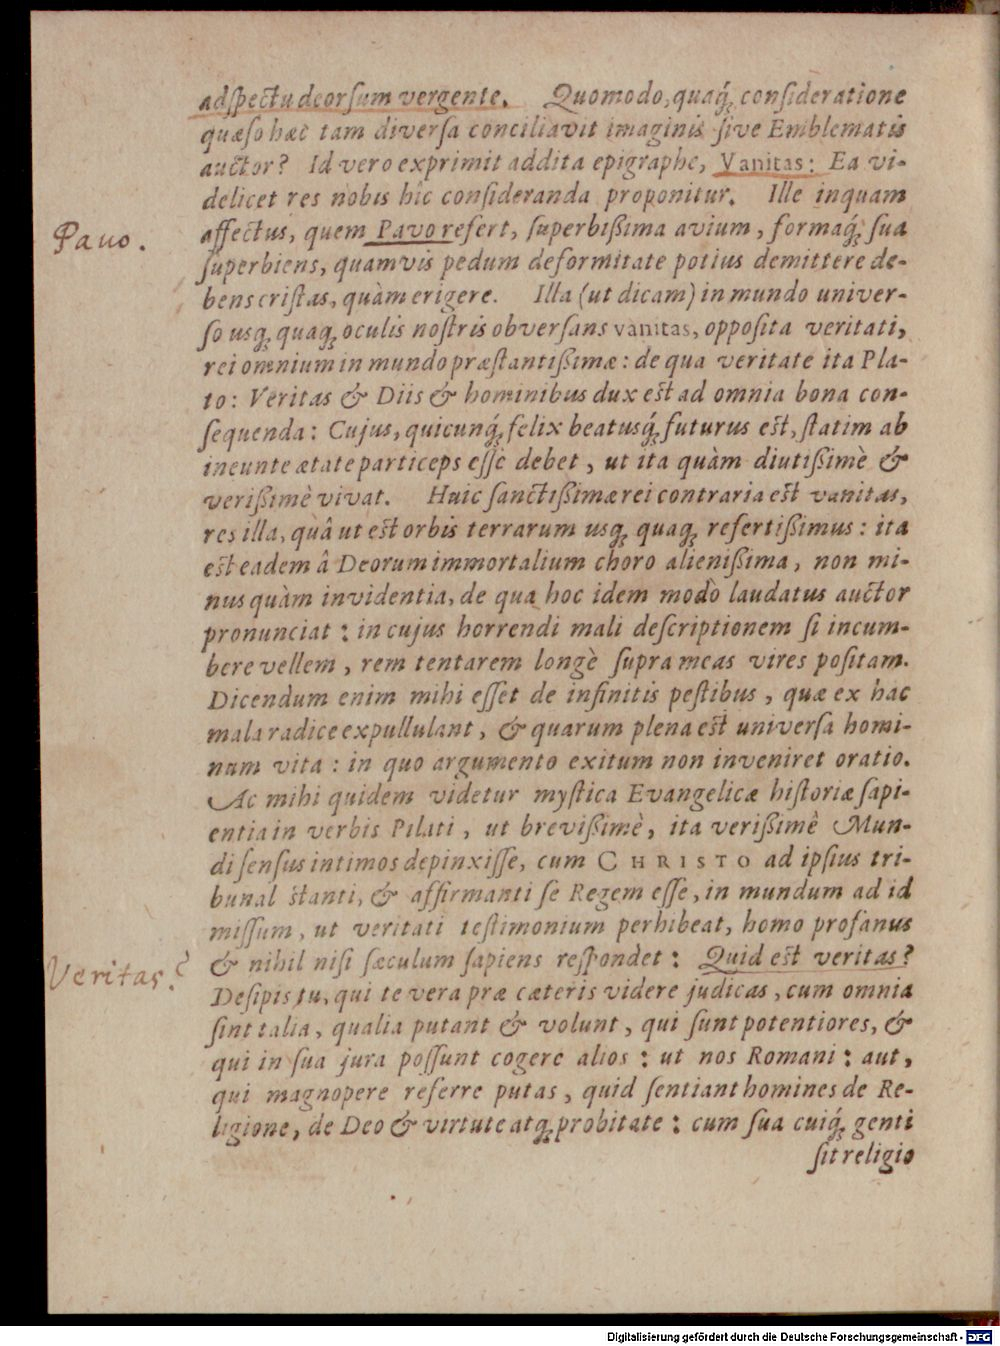 adſpectu deorſum vergente. Quomodo, quaq́; conſideratione
quæſo hæc tam diverſa conciliavit imaginis ſive Emblematis
auctor? Id vero exprimit addita epigraphe, Vanitas: Ea vi-
delicet res nobis hîc conſideranda proponitur. Ille inquam
Pavo.
affectus, quem Pavo refert, ſuperbißima avium, formaq́; ſua
ſuperbiens, quamvis pedum deformitate potius demittere de-
bens criſtas, quàm erigere. Illa (ut dicam) in mundo univer-
ſo usq; quaq; oculis noſtris obverſans vanitas, oppoſita veritati,
rei omnium in mundo præſtantißimæ: de qua veritate ita Pla-
to: Veritas & Diis & hominibus dux est ad omnia bona con-
ſequenda: Cujus, quicunq́; felix beatusq́; futurus est, ſtatim ab
ineunte ætate particeps eſſe debet, ut ita quàm diutißimè &
verißimè vivat. Huic ſanctißimæ rei contraria est vanitas,
res illa, quâ ut est orbis terrarum usq; quaq; refertißimus: ita
est eadem â Deorum immortalium choro alienißima, non mi-
nus quàm invidentia, de qua hoc idem modò laudatus auctor
pronunciat: in cujus horrendi mali deſcriptionem ſi incum-
bere vellem, rem tentarem longè ſupra meas vires poſitam.
Dicendum enim mihi eſſet de infinitis peſtibus, quæ ex hac
mala radice expullulant, & quarum plena est univerſa homi-
num vita: in quo argumento exitum non inveniret oratio.
Ac mihi quidem videtur myſtica Evangelicæ hiſtoriæ ſapi-
entia in verbis Pilati, ut brevißimè, ita verißimè Mun-
di ſenſus intimos depinxiſſe, cum CHRISTO ad ipſius tri-
bunal stanti, & affirmanti ſe Regem eſſe, in mundum ad id
miſſum, ut veritati teſtimonium perhibeat, homo profanus
Veritas?
& nihil niſi ſæculum ſapiens reſpondet: Quid est veritas?
Deſipis tu, qui te vera præ cæteris videre judicas, cum omnia
ſint talia, qualia putant & volunt, qui ſunt potentiores, &
qui in ſua jura poſſunt cogere alios: ut nos Romani: aut,
qui magnopere referre putas, quid ſentiant homines de Re-
ligione, de Deo & virtute atq; probitate: cum ſua cuiq́; genti
ſit religio
Digitalisierung gefördert durch die Deutsche Forschungsgemeinschaft - DFG